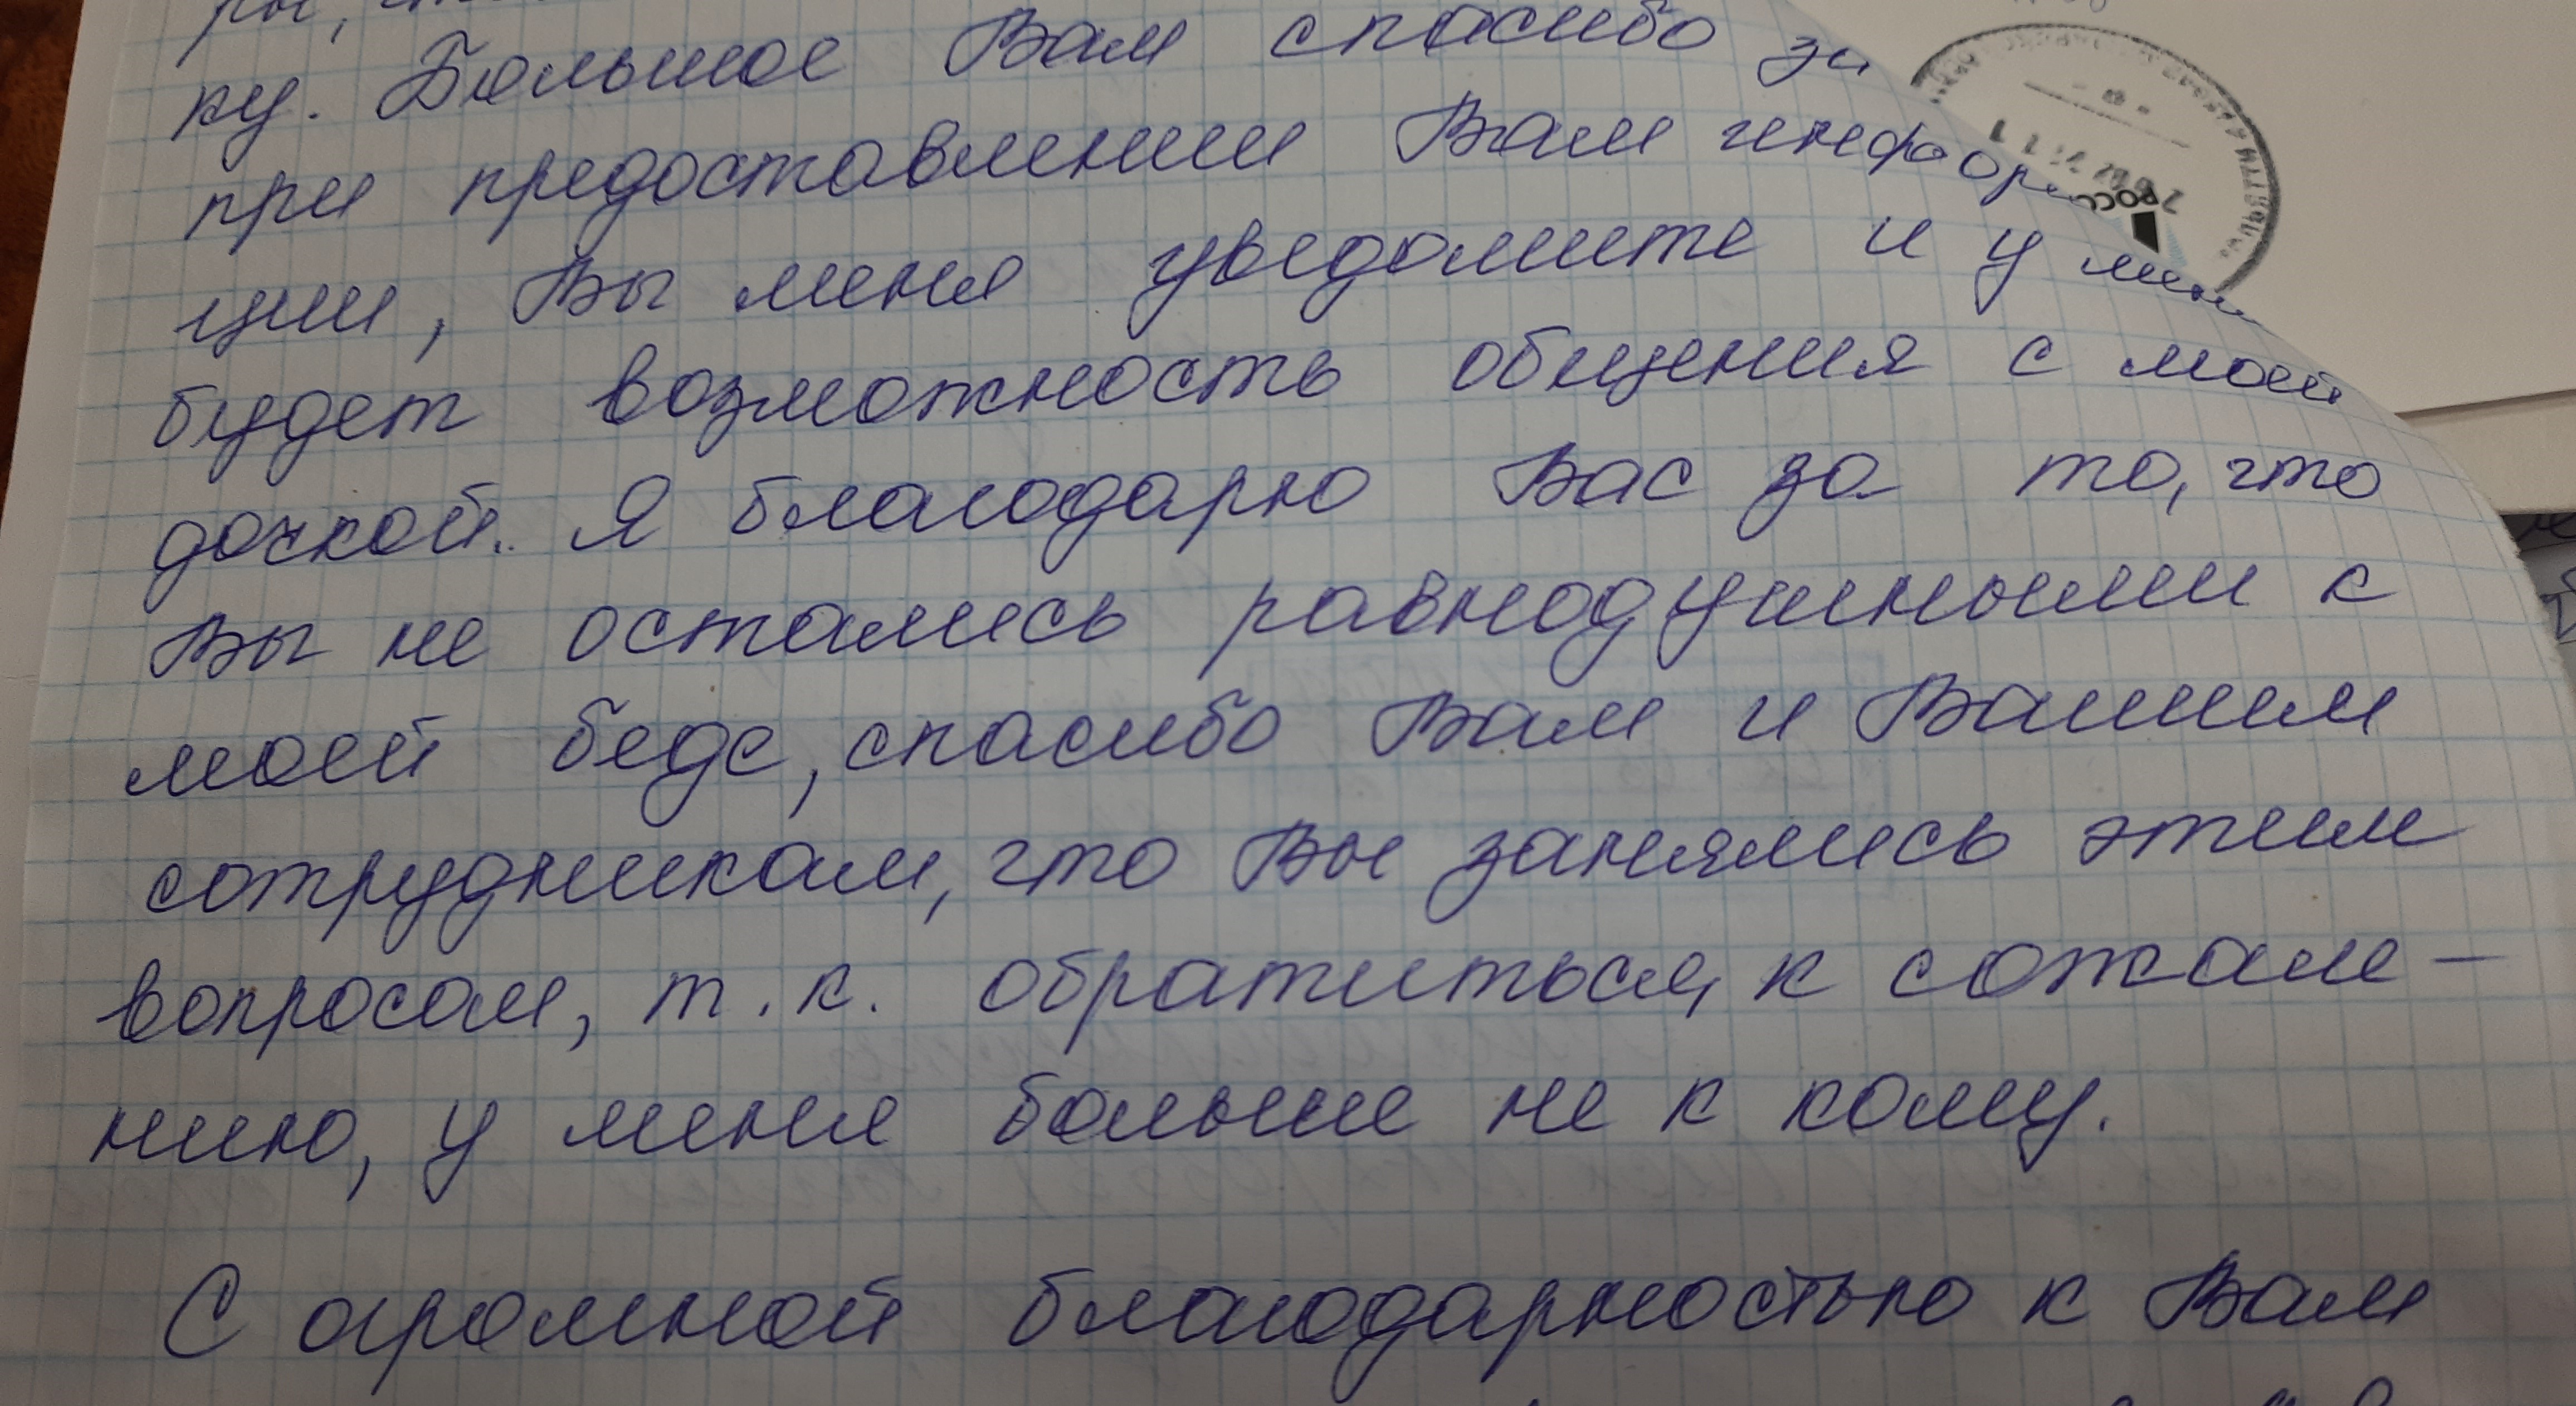 ку. Большое Вам спасибо за
при предоставлении Вам информа
ции, Вы меня уведомите и у меня
будет возможность общения с моей
дочкой. Я благодарю Вас за то, что
Вы не остались равнодушными к
моей беде, спасибо Вам и Вашим
сотрудникам, что Вы занялись этим
вопросом, т.к. обратиться, к сожале-
нию, у меня больше не к кому.
С огромной благодарностью к Вам